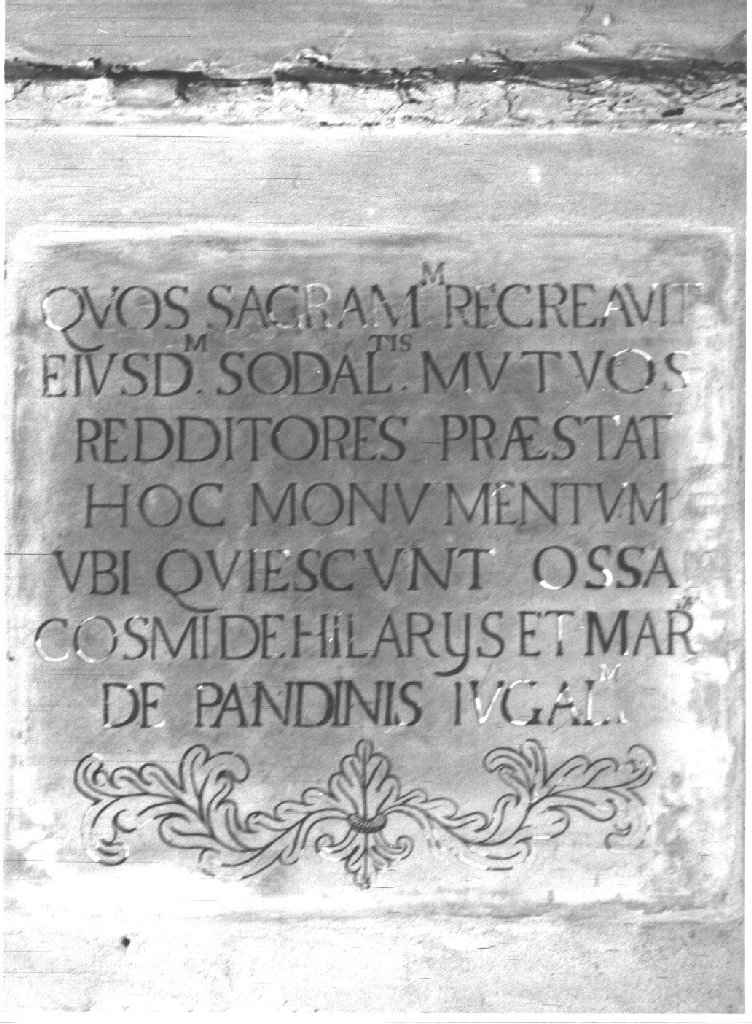 QVOS SAGRAM.ᴹ RECREAVIT
EIVSD.ᴹ SODAL.ᵀᴵˢ MVTVOS
REDDITORES PRÆSTAT
HOC MONVMENTVM
VBI QVIESCVNT OSSA
COSMI DE HILARIJS ET MAR
DE PANDINIS IVGAL.ᴹ